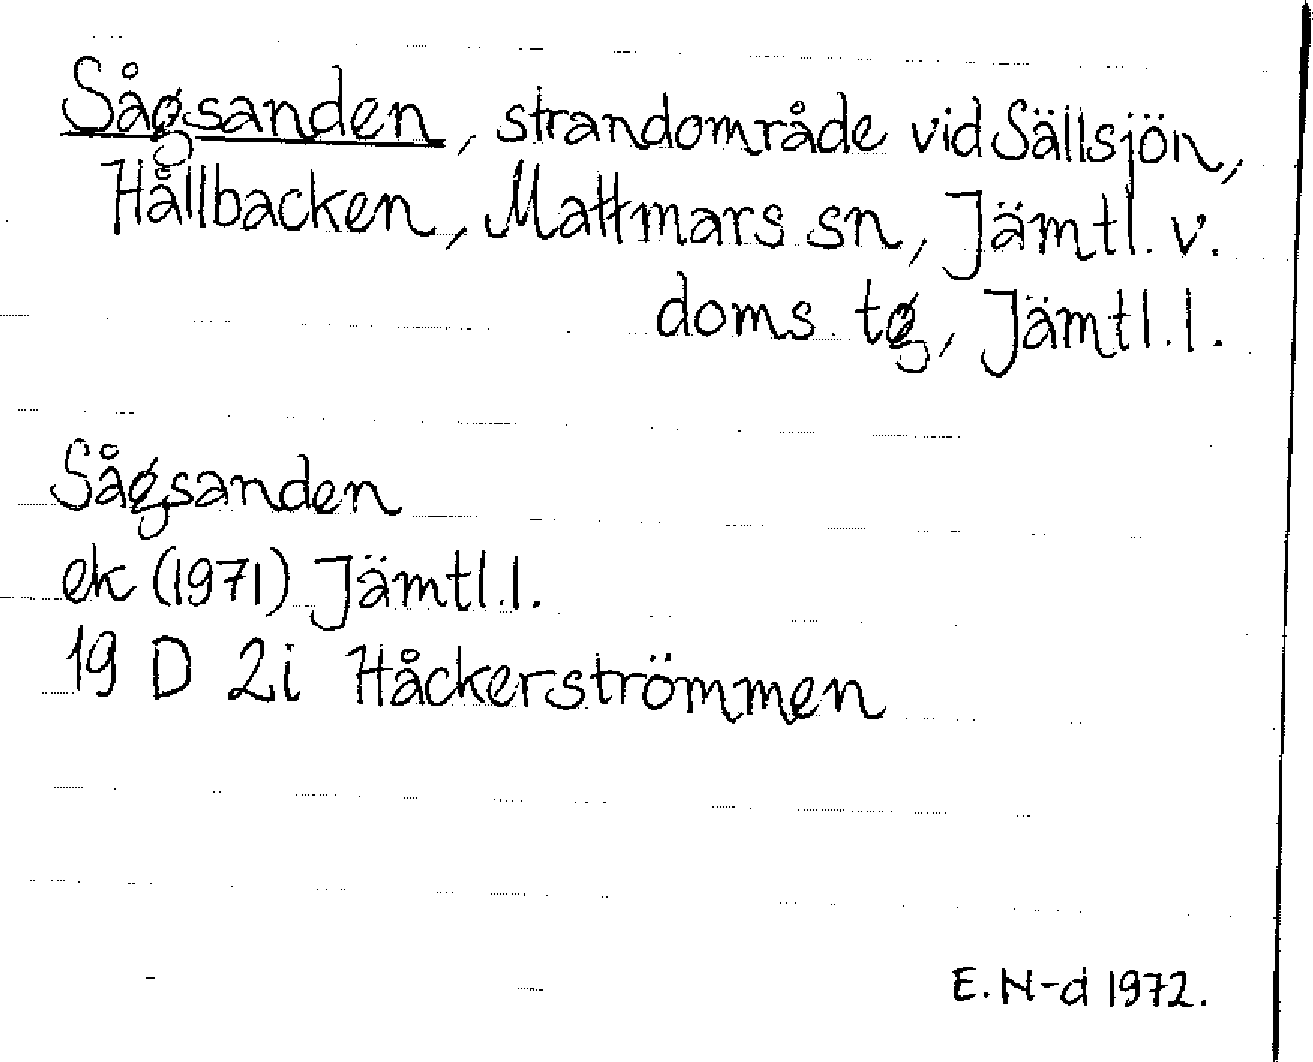 Sågsanden, strandområde vid Sällsjön,
Hållbacken, Mattmars sn, Jämtl. v.
doms. tg, Jämtl. l.
Sågsanden
ek (1971) Jämtl. l.
19 D 2i Håckerströmmen
E. N-d 1972.